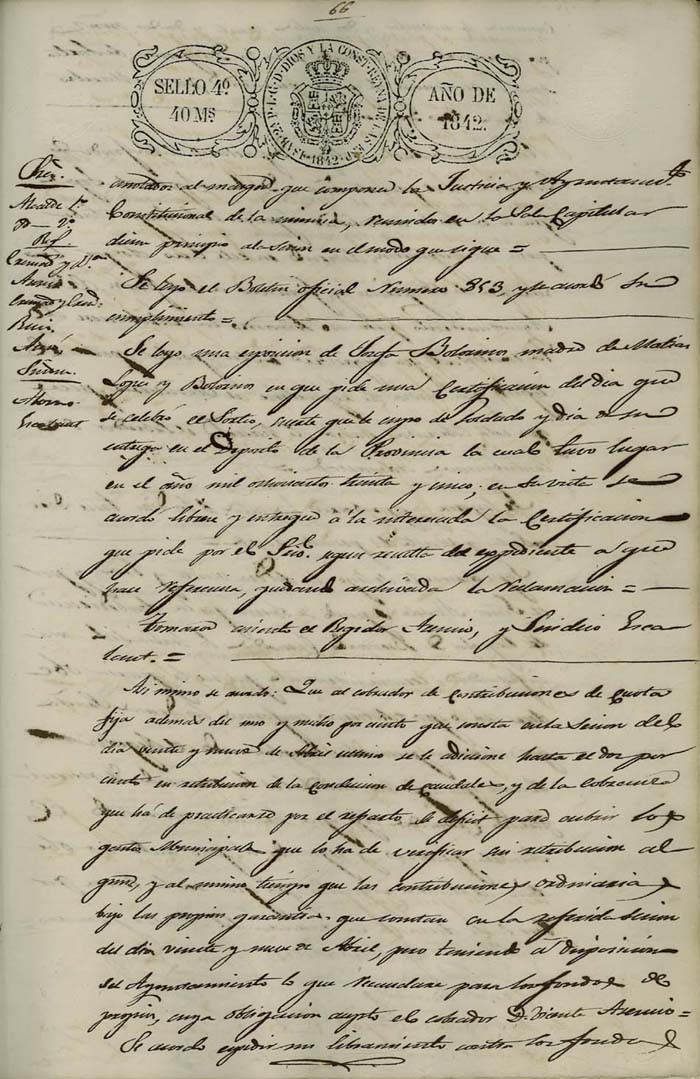 66
SELLO 4º
40 Ms
ISABEL 2ª P. L. G. D. DIOS Y LA CONST. REYNA DE LAS ESP. 1842
AÑO DE
1842.
Alcalde 1º
2º
anotados al margen que componen la Justicia y Ayuntamtº
Constitucional de la misma, reunidos en la Sala Capitular
dieron principio al a Sesion en el modo que sigue =
Se leyo el Boletin oficial Numero 853, y se acordó su
cumplimiento =
Se leyo una exposicion de Josefa Bolainos madre de Matias
Lopez y Bolainos en que pide una Certificacion del dia que
se celebró el Sorteo, suerte que le cupo de Soldado y dia de su
entrega en el Deposito de la Provincia la cual tuvo lugar
en el año mil ochocientos treinta y cinco; en su vista se
acordo librar y entregar á la interesada la Certificacion
que pide por el Srio. segun resulta del expediente a que
hace referencia, quedando archivada la reclamacion =
Tomaron asiento el Regidor Asensio, y Sindico Esca
lant. =
Asi mismo se acordo: Que al cobrador de Contribuciones de Cuota
fija además del uno y medio por ciento que consta en la Sesion del
dia veinte y nueve de Abril ultimo se le adicione hasta el dos por
ciento en retribucion de la Conduccion de caudales, y de la Cobranza
que há de practicarse por el reparto de deficit para cubrir los
gastos Municipales que lo ha de verificar sin retribucion al
guna, y al mismo tiempo que las contribuciones ordinarias
bajo las propias garantias que constan en la referida Sesion
del dia veinte y nueve de Abril, pero teniendo á disposicion
del Ayuntamiento lo que recaudare para los fondos de
propios, cuya obligacion aceptó el cobrador D. Vicente Asensio =
Se acordo expedir un libramiento contra los fondos